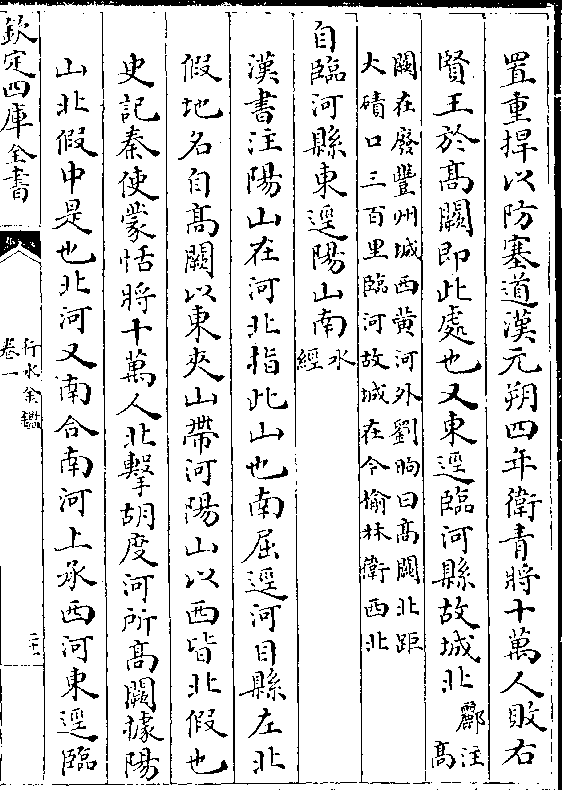 置重捍以防塞道漢元朔四年衛青將十萬人敗右
賢王於高闕即此處也又東逕臨河縣故城北酈注高
闕在廢豐州城西黃河外劉昫曰高闕北距
大磧口三百里臨河故城在今榆林衛西北
自臨河縣東逕陽山南水經
漢書注陽山在河北指此山也南屈逕河目縣左北
假地名自高闕以東夾山帶河陽山以西皆北假也
史記秦使蒙恬將十萬人北擊胡度河所高闕據陽
山北假中是也北河又南合南河上承西河東逕臨
欽定四庫全書
行水金鑑
卷一